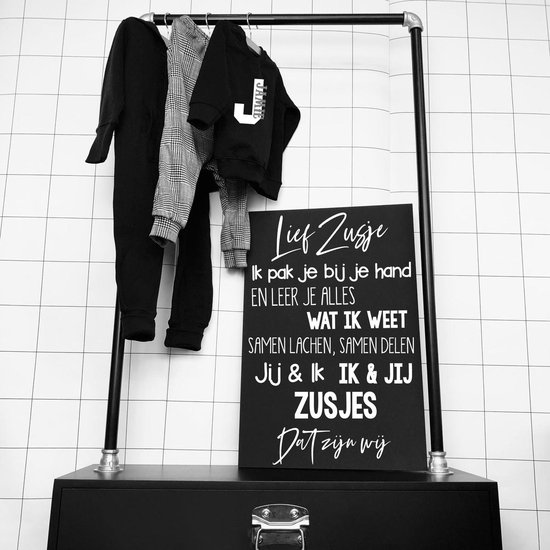 J
JAMIE
Lief Zusje
Ik pak je bij je hand
EN LEER JE ALLES
WAT IK WEET
SAMEN LACHEN, SAMEN DELEN
Jij & Ik IK & JIJ
ZUSJES
Dat zijn wij